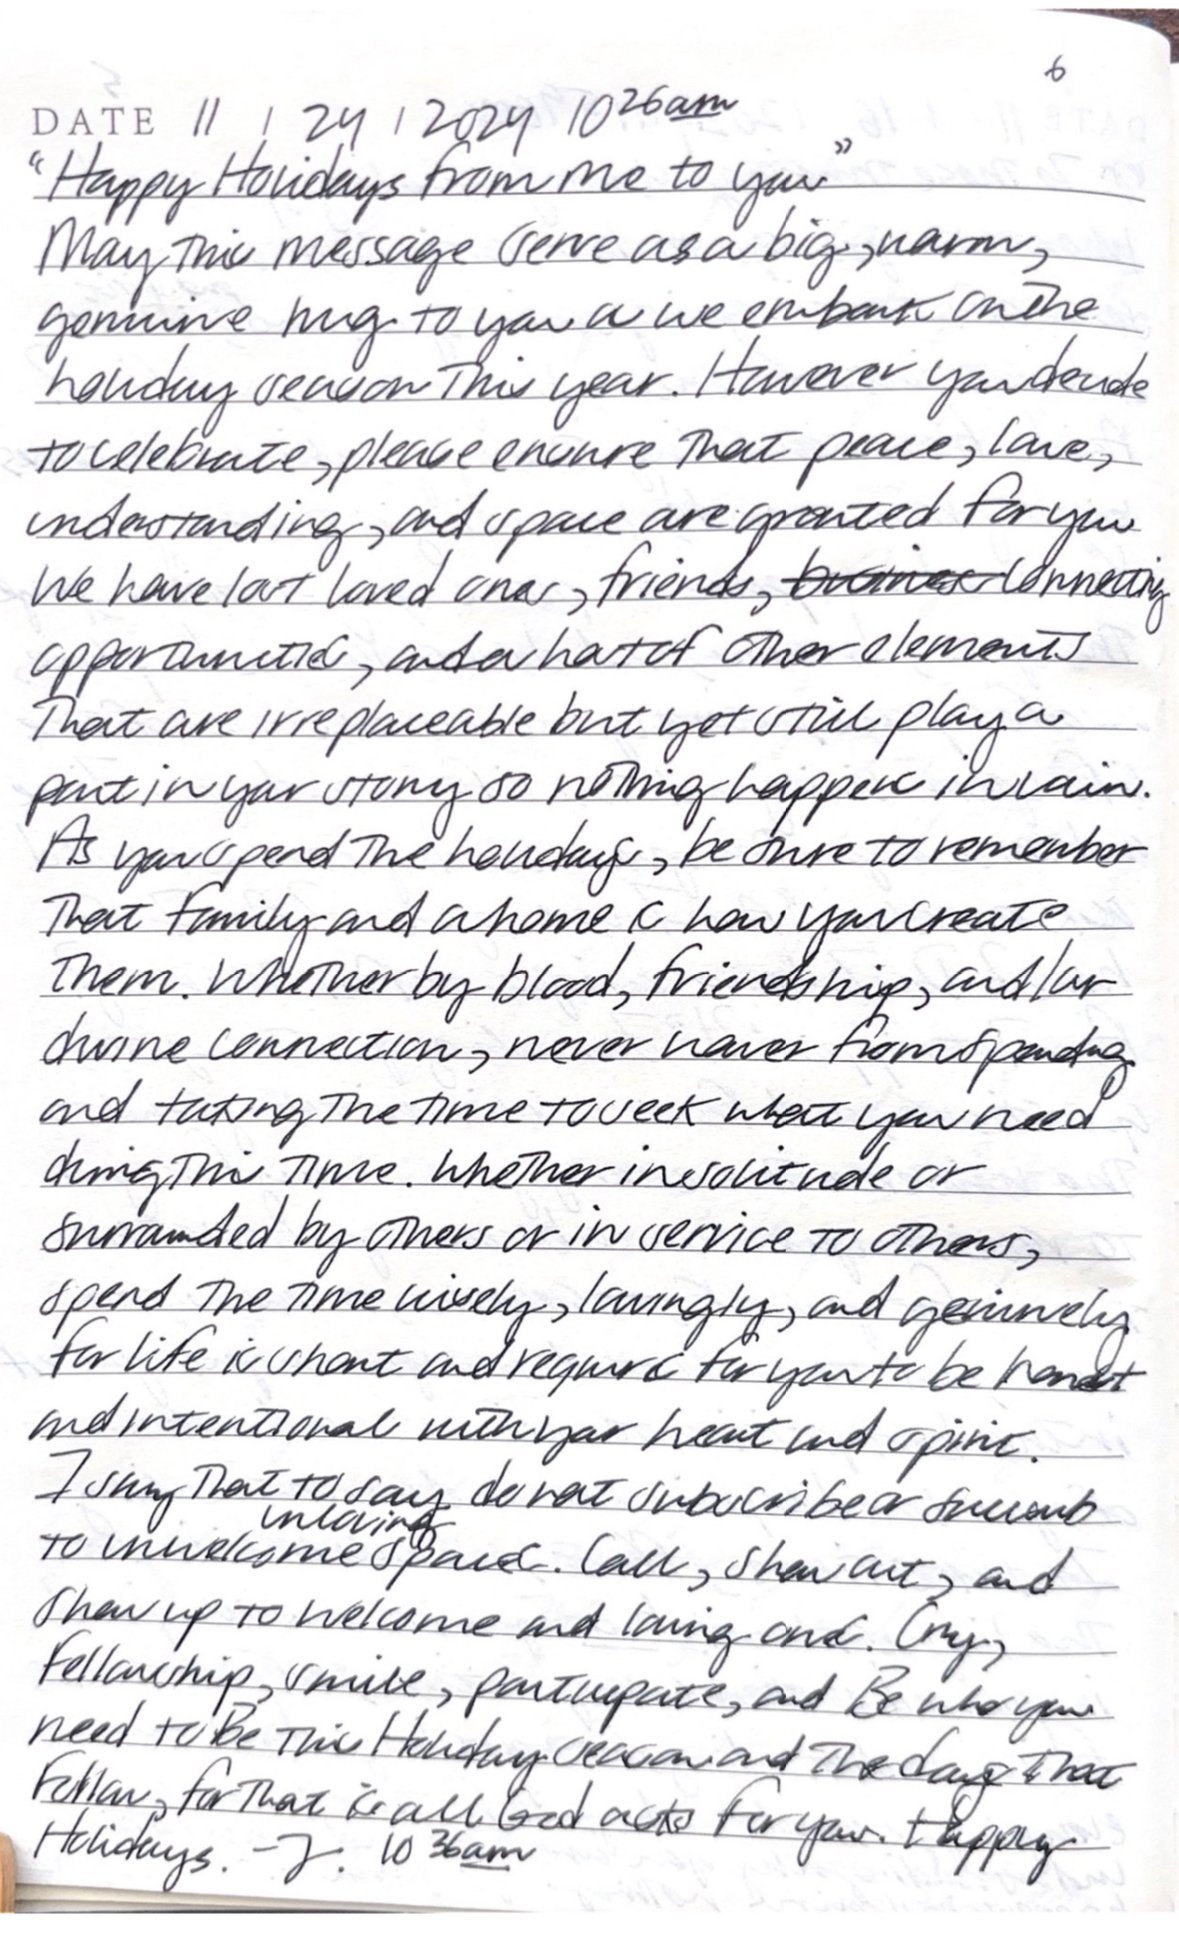 6
DATE 11 / 24 / 2024 10 26am
"Happy Holidays from me to you"
May this message serve as a big, warm,
genuine hug to you as we embark on the
holiday season this year. However you decide
to celebrate, please ensure that peace, love,
understanding, and space are granted for you
We have lost loved ones, friends, business connecting
opportunities, and a host of other elements
that are irreplaceable but yet still play a
part in your story so nothing happens in vain.
As you spend the holidays, be sure to remember
that family and a home is how you create
them. Whether by blood, friendship, and/or
divine connection, never waver from spending
and taking the time to seek what you need
during this time. Whether in solitude or
surrounded by others or in service to others,
spend the time wisely, lovingly, and genuinely
for life is short and requires for you to be honest
and intentional with your heart and spirit.
I say that to say do not subscribe or succumb
unloving
to unwelcome spaces. Call, show out, and
show up to welcome and loving ones. Cry,
Fellowship, smile, participate, and Be who you
need to Be this Holiday season and the days that
Follow, for that is all God asks for you. Happy
Holidays. -J. 10 36am